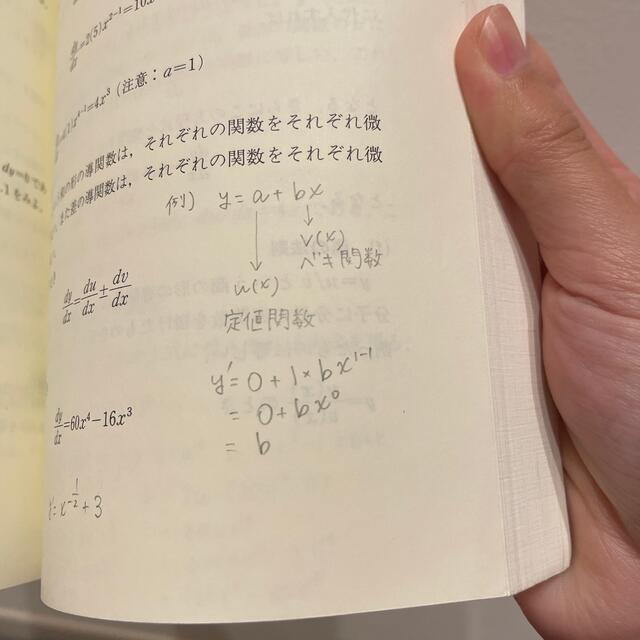 dy/dx=2(5)x²⁻¹=10x
x⁴⁻¹=4x³ (注意：a=1)
の形の導関数は，それぞれの関数をそれぞれ微
また差の導関数は，それぞれの関数をそれぞれ微
例) y = a + bx
v(x)
ベキ関数
u(x)
定値関数
dy/dx=du/dx±dv/dx
y' = 0 + 1 × b x¹⁻¹
= 0 + b x⁰
= b
dy/dx=60x⁴−16x³
= x^(-1/2) + 3
dy=0であ
-1をみよ．